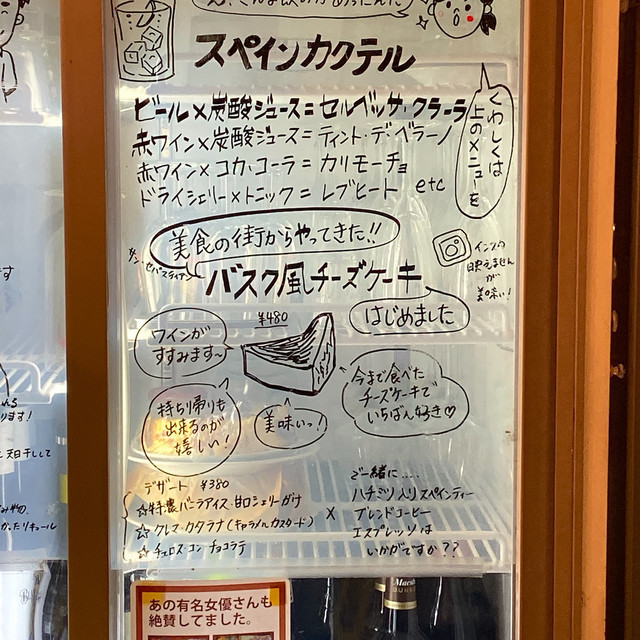 スペインカクテル
ビール×炭酸ジュース=セルベッサ・クラーラ
赤ワイン×炭酸ジュース=ティント・デ・ベラーノ
赤ワイン×コカ・コーラ=カリモーチョ
ドライシェリー×トニック=レブヒート etc
くわしくは
上のメニューを
美食の街からやってきた!!
サン・セバスティアン
バスク風チーズケーキ
はじめました
インスタ
映えませんが
美味い!
¥480
ワインが
すすみます~
持ち帰りも
出来るのが
嬉しい!
美味いっ!
今まで食べた
チーズケーキで
いちばん好き♡
デザート ¥380
☆特製バニラアイス・甘口シェリーがけ
☆クレマ・カタラナ(キャラメルカスタード)
☆チュロス・コン・チョコラテ
×
ご一緒に....
ハチミツ入りスペインティー
ブレンドコーヒー
エスプレッソは
いかがですか??
あの有名女優さんも
絶賛してました。